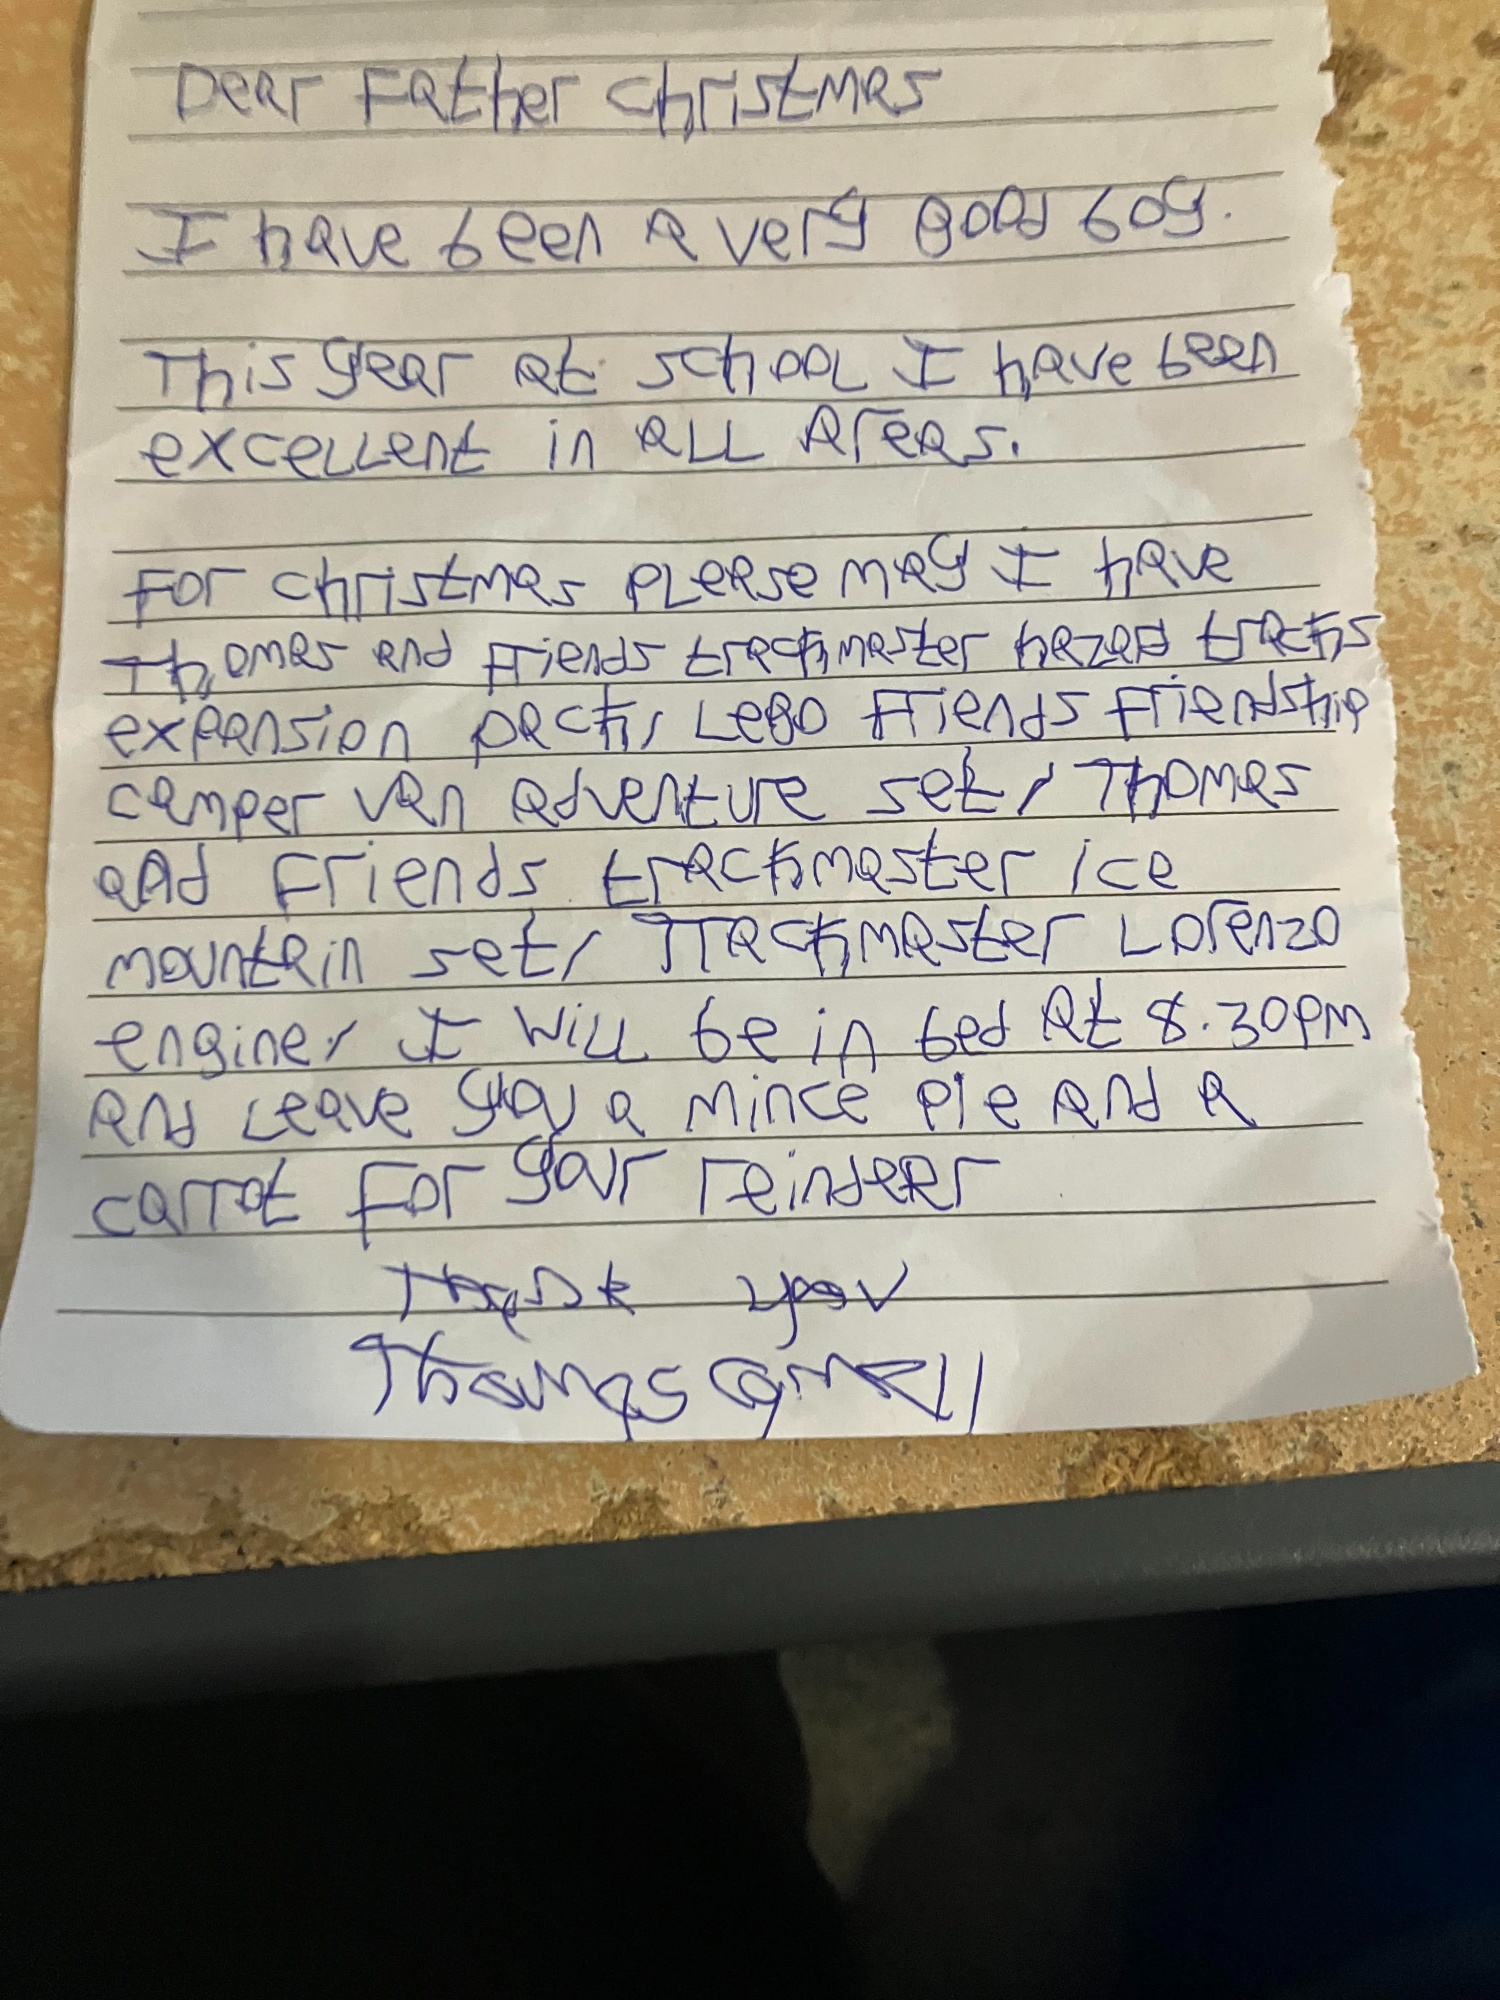 Dear Father christmas
I have been a very good boy.
This year at school I have been
excellent in all areas.
For christmas please may I have
Thomas and Friends trackmaster hazard tracks
expansion pack, Lego Friends Friendship
camper van adventure set, Thomas
and Friends trackmaster ice
mountain set, Trackmaster Lorenzo
engine, I will be in bed at 8.30pm
and leave you a mince pie and a
carrot for your reindeer
Thank you
Thomas